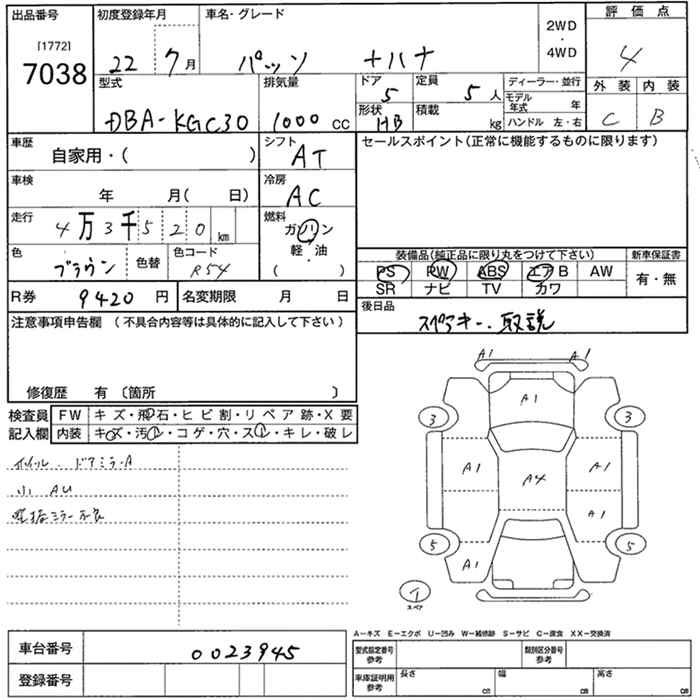 出品番号
［1772］
7038
初度登録年月
22 7月
車名・グレード
パッソ +ハナ
2WD
・
4WD
評価点
4
外装 内装
C B
型式
DBA-KGC30
排気量
1000 cc
ドア
5
定員
5人
形状
HB
積載
kg
ディーラー・並行
モデル年式 年
ハンドル 左・右
車歴
自家用・( )
シフト
AT
セールスポイント(正常に機能するものに限ります)
車検
年 月( 日)
冷房
AC
走行
4万3千520km
燃料
ガソリン
軽・油
( )
色
ブラウン
色替
色コード
R54
装備品(純正品に限り丸をつけて下さい)
PS PW ABS エアB AW
SR ナビ TV カワ
新車保証書
有・無
R券 9420円
名変期限 月 日
後日品
スペアキー、取説
注意事項申告欄 (不具合内容等は具体的に記入して下さい)
修復歴 有〔箇所 〕
検査員
記入欄
FW キズ・飛石・ヒビ割・リペア跡・X要
内装 キズ・汚レ・コゲ・穴・スレ・キレ・破レ
ホイル・ドアミラーA
小AU
A1 A1
A1
3 3
A1 A4 A1
A1
5 5
A1
スペア
A－キズ E－エクボ U－凹み W－補修跡 S－サビ C－腐食 XX－交換済
車台番号
0023945
登録番号
型式指定番号
参考
類別区分番号
参考
車庫証明用
参考
長さ cm
幅 cm
高さ cm